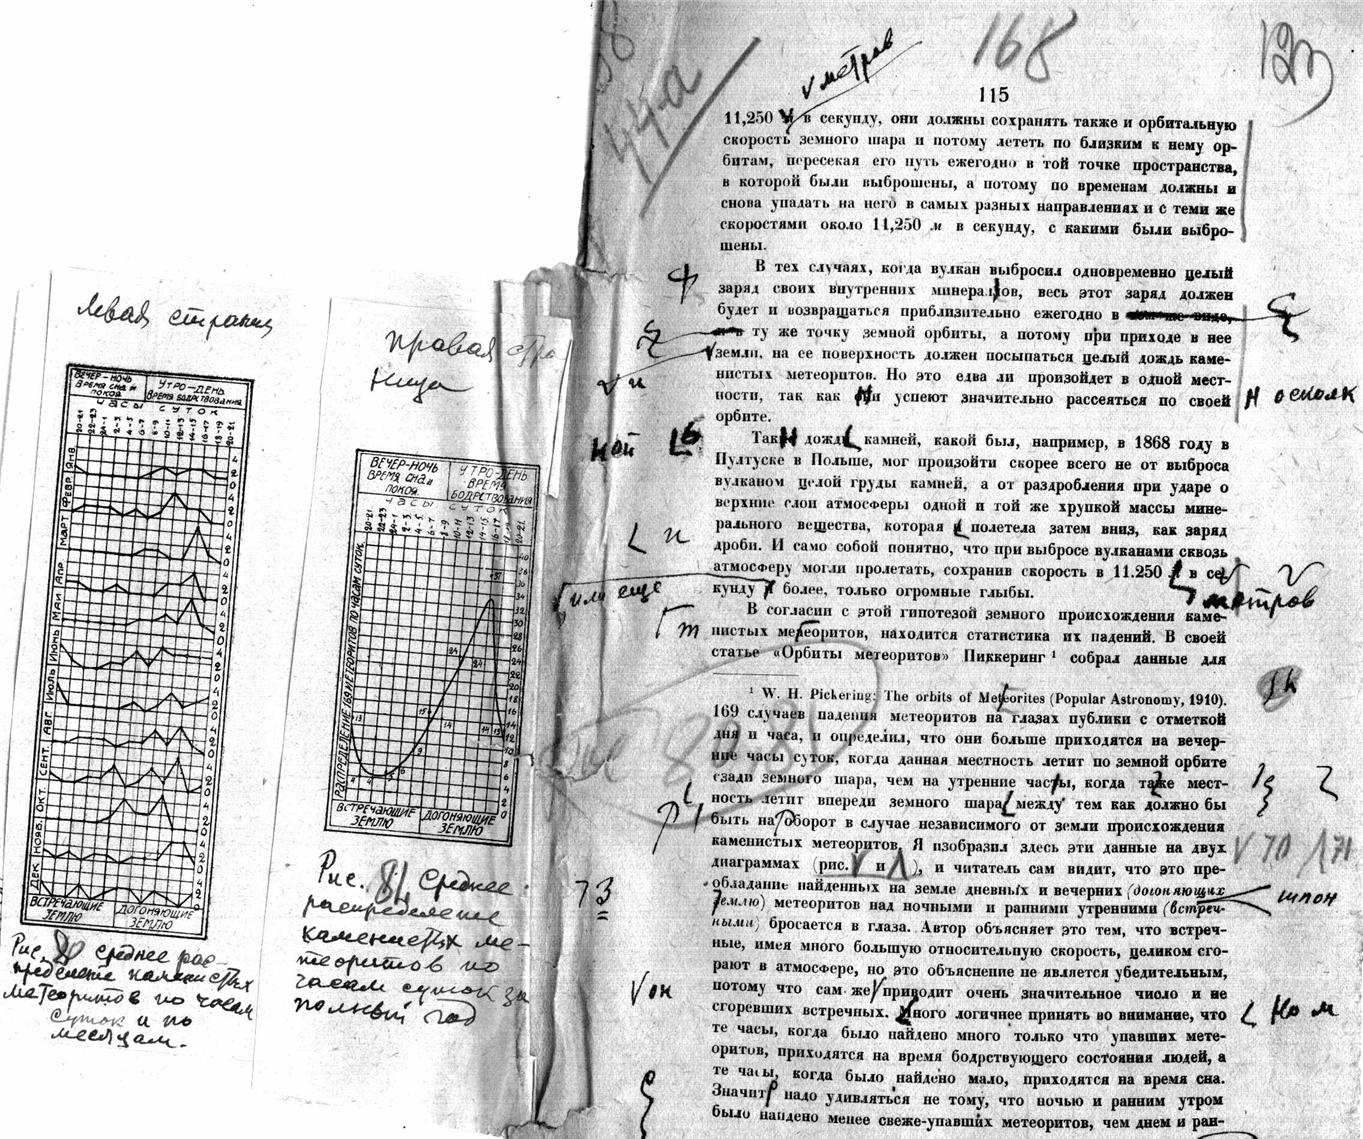 168
123
44-а
метров
115
11,250 м в секунду, они должны сохранять также и орбитальную
скорость земного шара и потому лететь по близким к нему ор-
битам, пересекая его путь ежегодно в той точке пространства,
в которой были выброшены, а потому по временам должны и
снова упадать на него в самых разных направлениях и с теми же
скоростями около 11,250 м в секунду, с какими были выбро-
шены.
В тех случаях, когда вулкан выбросил одновременно целый
заряд своих внутренних минералов, весь этот заряд должен
будет и возвращаться приблизительно ежегодно в
ту же точку земной орбиты, а потому при приходе в нее
земли, на ее поверхность должен посыпаться целый дождь каме-
нистых метеоритов. Но это едва ли произойдет в одной мест-
ности, так как они успеют значительно рассеяться по своей
орбите.
оскол
ной
Такой дождь камней, какой был, например, в 1868 году в
Пултуске в Польше, мог произойти скорее всего не от выброса
вулканом целой груды камней, а от раздробления при ударе о
верхние слои атмосферы одной и той же хрупкой массы мине-
рального вещества, которая и полетела затем вниз, как заряд
дроби. И само собой понятно, что при выбросе вулканами сквозь
атмосферу могли пролетать, сохранив скорость в 11.250 м в се-
кунду и более, только огромные глыбы.
или еще
метров
В согласии с этой гипотезой земного происхождения каме-
нистых метеоритов, находится статистика их падений. В своей
статье «Орбиты метеоритов» Пиккеринг ¹ собрал данные для
¹ W. H. Pickering: The orbits of Meteorites (Popular Astronomy, 1910).
169 случаев падения метеоритов на глазах публики с отметкой
дня и часа, и определил, что они больше приходятся на вечер-
ние часы суток, когда данная местность летит по земной орбите
сзади земного шара, чем на утренние часы, когда та же мест-
ность летит впереди земного шара, между тем как должно бы
быть наоборот в случае независимого от земли происхождения
каменистых метеоритов. Я изобразил здесь эти данные на двух
диаграммах (рис. и ), и читатель сам видит, что это пре-
обладание найденных на земле дневных и вечерних (догоняющих
землю) метеоритов над ночными и ранними утренними (встреч-
ными) бросается в глаза. Автор объясняет это тем, что встреч-
ные, имея много большую относительную скорость, целиком сго-
рают в атмосфере, но это объяснение не является убедительным,
потому что сам же приводит очень значительное число и не
сгоревших встречных. Много логичнее принять во внимание, что
те часы, когда было найдено много только что упавших мете-
оритов, приходятся на время бодрствующего состояния людей, а
те часы, когда было найдено мало, приходятся на время сна.
Значит надо удивляться не тому, что ночью и ранним утром
было найдено менее свеже-упавших метеоритов, чем днем и ран-
70
71
шпон
он
Левая страниц
ВЕЧЕР-НОЧЬ
ВРЕМЯ СНА И
ПОКОЯ
УТРО-ДЕНЬ
ВРЕМЯ БОДРСТВОВАНИЯ
ЧАСЫ СУТОК
ЯНВ.
ФЕВР.
МАРТ
АПР
МАИ
ИЮНЬ
ИЮЛЬ
АВГ.
СЕНТ.
ОКТ.
НОЯБ.
ДЕК.
ВСТРЕЧАЮЩИЕ
ЗЕМЛЮ
ДОГОНЯЮЩИЕ
ЗЕМЛЮ
Среднее рас-
пределение каменистых
метеоритов по часам
суток и по
месяцам.
Правая стра
ница
ВЕЧЕР-НОЧЬ
ВРЕМЯ СНА И
ПОКОЯ
УТРО-ДЕНЬ
ВРЕМЯ
БОДРСТВОВАНИЯ
ЧАСЫ СУТОК
РАСПРЕДЕЛЕНИЕ 169 МЕТЕОРИТОВ ПО ЧАСАМ СУТОК
ВСТРЕЧАЮЩИЕ
ЗЕМЛЮ
ДОГОНЯЮЩИЕ
ЗЕМЛЮ
Рис. 81 Среднее
распределение
каменистых ме-
теоритов по
часам суток за
полный год